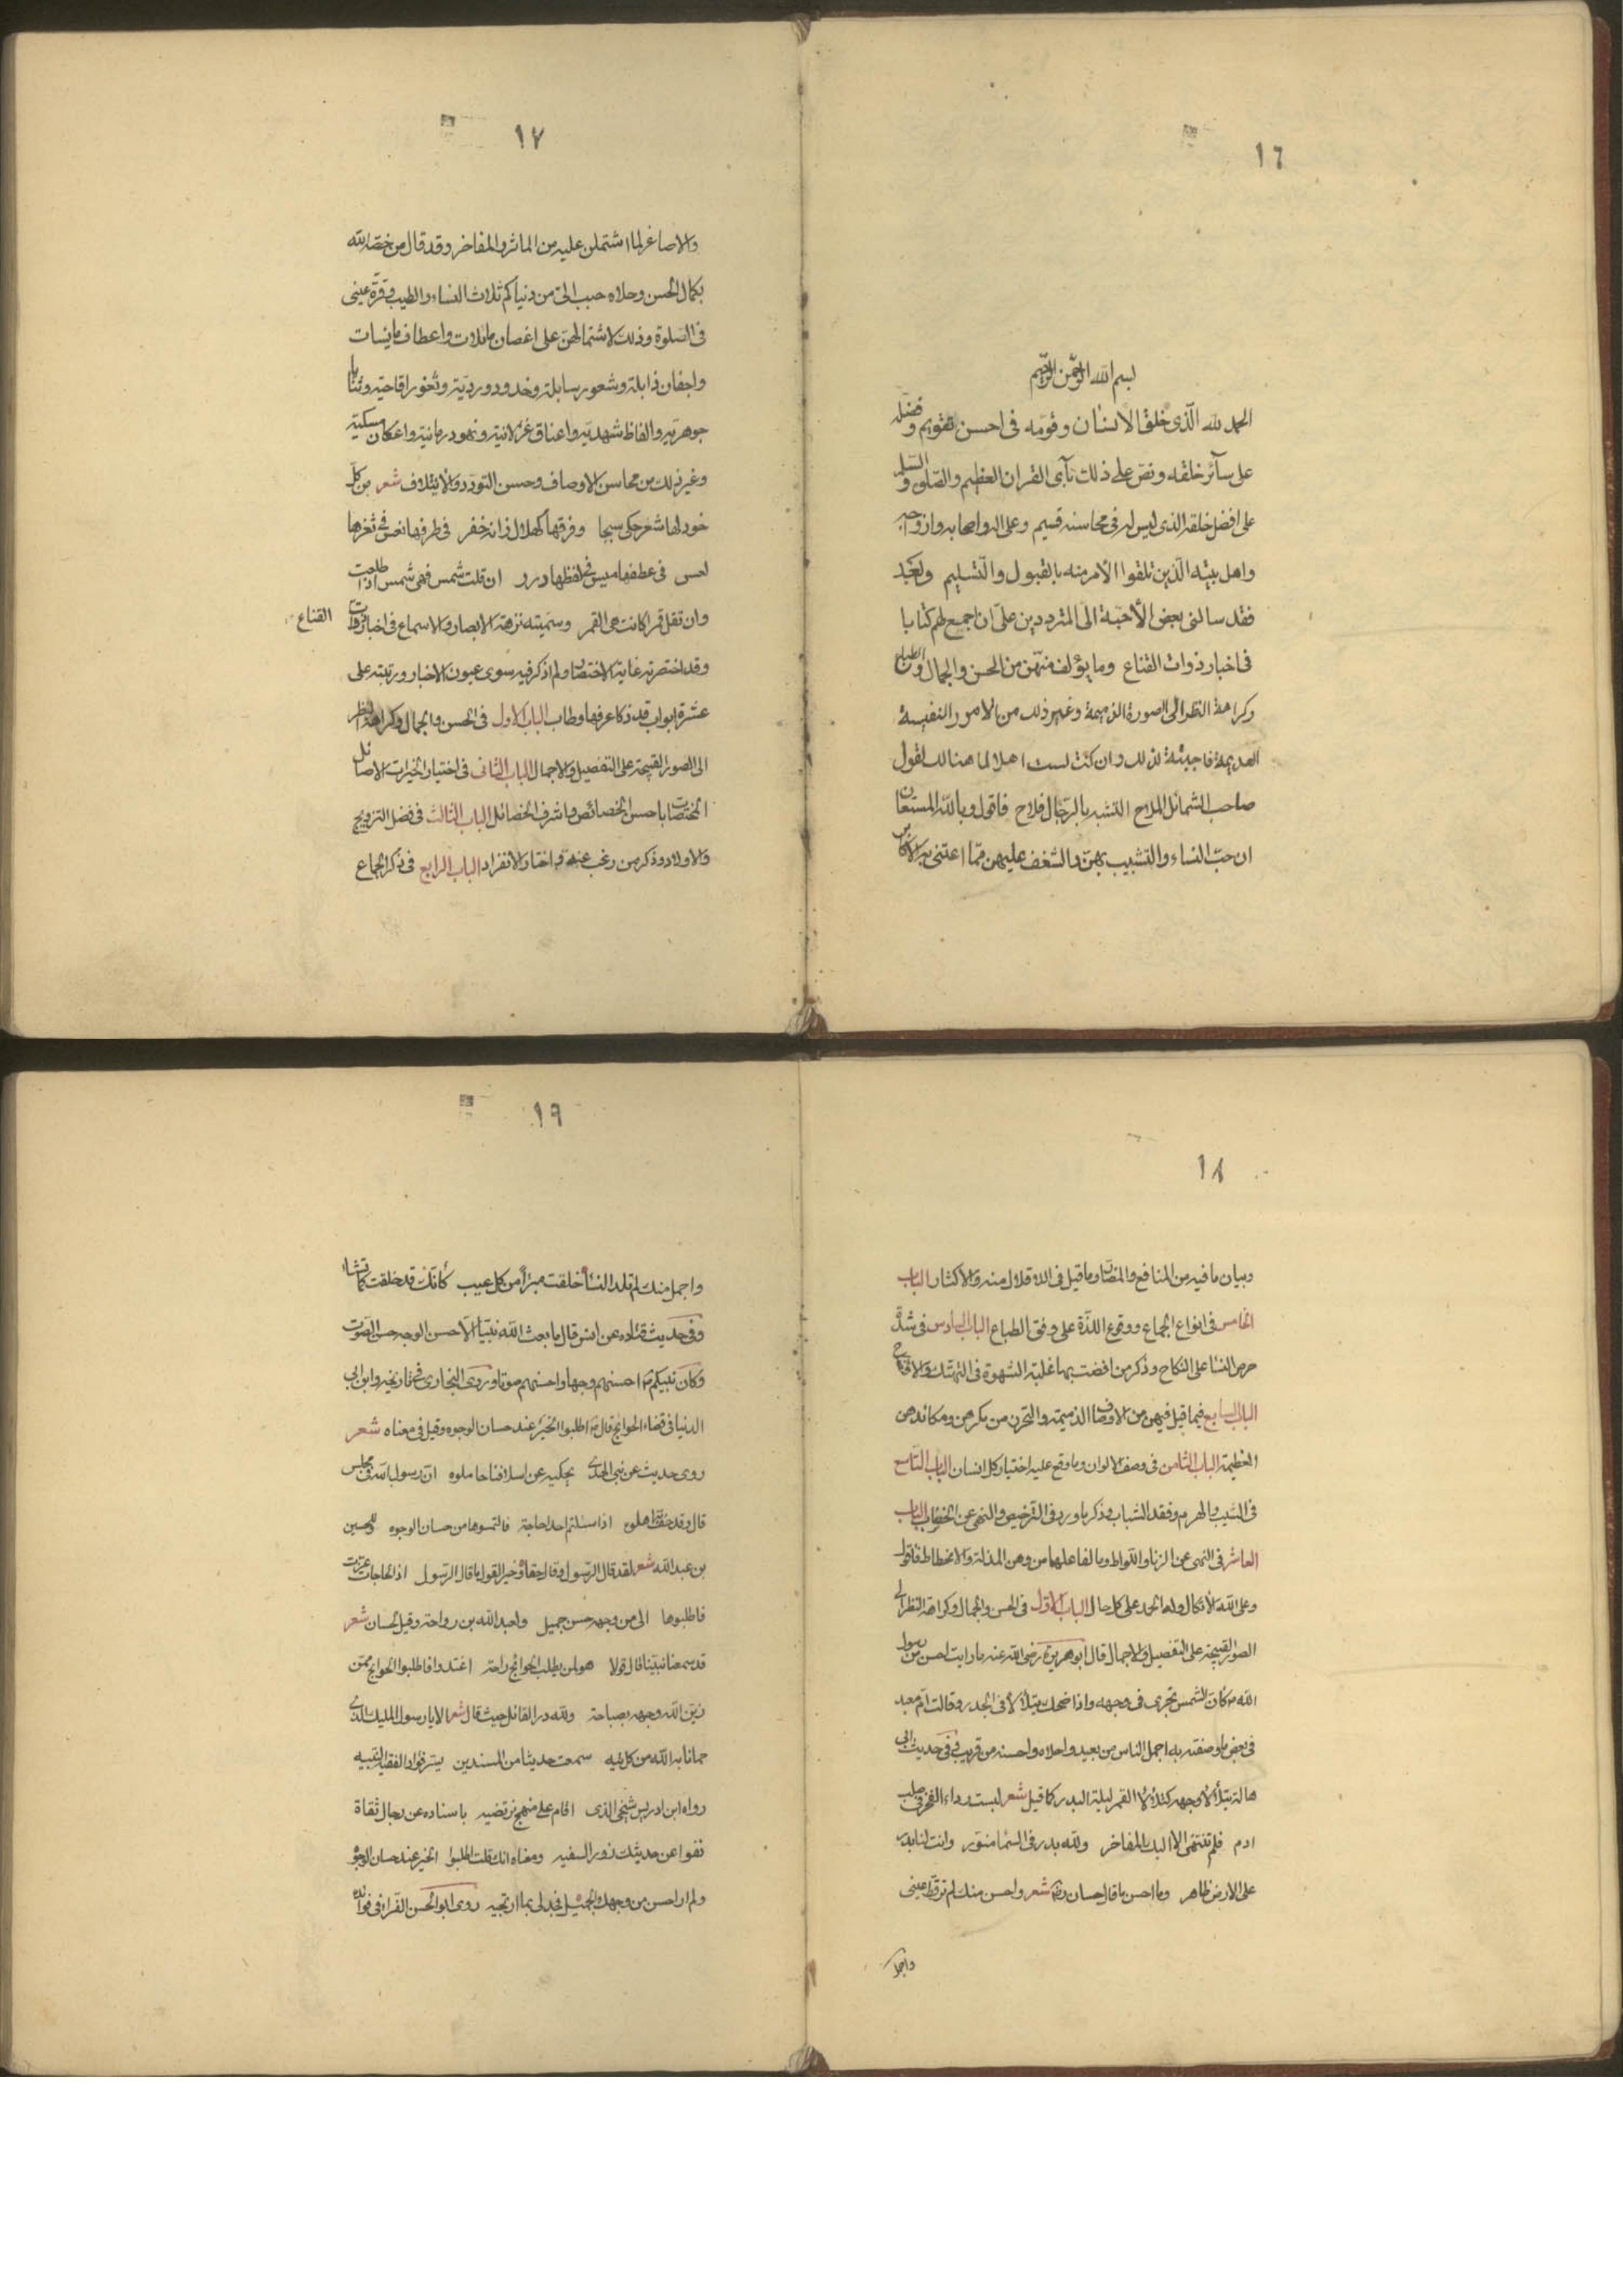 ١٦
بسم الله الرحمن الرحيم
الحمد لله الذى خلق الانسان وقومه فى احسن تقويم وفضله
على سآئر خلقه ونص على ذلك بآى القران العظيم والصلوة والسلم
على افضل خلقه الذى ليس له فى محاسنه قسيم وعلى اله واصحابه وازواجه
واهل بيته الذين تلقوا الامر منه بالقبول والتسليم وبعد
فقد سالنى بعض الأحبة الى المترددين على ان اجمع لهم كتابا
فى اخبار ذوات القناع وما يؤلف منهن من الحسن والجمال و
وكراهة النظر الى الصورة الذميمة وغير ذلك من الامور النفيسة
العديمة فاجبته لذلك وان كنت لست اهلا لما هنالك لقول
صاحب الشمائل الملاح التشبه بالرجال فلاح فاقول وبالله المستعان
ان حب النساء والتشبيب بهن والشغف عليهن مما اعتنى به الاكابر
١٧
والاصاغر لما اشتملن عليه من الماثر والمفاخر وقد قال من خصه الله
بكمال الحسن وحلاه حبب الى من دنياكم ثلاث النساء والطيب وقرة عينى
فى الصلوة وذلك لاشتمالهن على اغصان مائلات واعطاف مايسات
واجفان ذابلة وشعور سابلة وخدود وردية وثغور اقاحية وثنايا
جوهرية والفاظ شهدية واعناق غزلانية ونهود رمانية واعكان مسكية
وغير ذلك من محاسن الاوصاف وحسن التودد والائتلاف شعر من كل
خود لها شعر حكى سبجا وفرقها كهلال زانه خفر فى طرفها نعس فى ثغرها
لعس فى عطفها ميس فى لفظها درر ان قلت شمس فهى شمس اذا طلعت
وان تقل قمر كانت هى القمر وسميته نزهة الابصار والاسماع فى اخبار ذوات القناع
وقد اختصرته غاية الاختصار ولم اذكر فيه سوى عيون الاخبار ورتبته على
عشرة ابواب قد ذكا عرفها وطاب الباب الاول فى الحسن والجمال وكراهة النظر
الى الصور القبيحة على التفصيل والاجمال الباب الثانى فى اختيار الخيرات الاصائل
المختصات باحسن الخصائص واشرف الخصائل الباب الثالث فى فضل التزويج
والاولاد وذكر من رغب عنه واختار الانفراد الباب الرابع فى ذكر الجماع
١٨
وبيان ما فيه من المنافع والمضار وما قيل فى الاقلال منه والاكثار الباب
الخامس فى انواع الجماع ووقوع اللذة على وفق الطباع الباب السادس فى شدة
حرص النسا على النكاح وذكر من افضت بها غلبة الشهوة فى التهتك والافتضاح
الباب السابع فيما قيل فيهن من الاوصاف الذميمة والتحرن من مكرهن ومكائدهن
العظيمة الباب الثامن فى وصف الالوان وما وقع عليه اختيار كل انسان الباب التاسع
فى الشيب والهرم وفقد الشباب وذكر ما ورد فى الترخيص والنهى عن الخضاب الباب
العاشر فى النهى عن الزنا واللواط وما لفاعلهما من وهن المذلة والانحطاط فاقول
وعلى الله الاتكال وله الحمد على كل حال الباب الاول فى الحسن والجمال وكراهة النظر الى
الصور القبيحة على التفصيل والاجمال قال ابو هريرة رضى الله عنه ما رايت احسن من رسول
الله ص كان الشمس تجرى فى وجهه واذا ضحك يتلألأ فى الجدر وقالت ام معبد
فى بعض ما وصفته به اجمل الناس من بعيد واحلاه واحسنه من قريب وفى حديث ابى
هالة يتلألأ وجهه كتلألأ القمر ليلة البدر كما قيل شعر لبست رداء الفخر فى صلب
ادم فلم تنتهى الا اليك المفاخر ولله بدر فى السما منور وانت لنا بدر
على الارض ظاهر وما احسن ما قال حسان رضه شعر واحسن منك لم ترقط عينى
واجمل
١٩
واجمل منك لم تلد النساء خلقت مبرأ من كل عيب كأنك قد خلقت كما تشاء
وفى حديث قتاده عن انس قال ما بعث الله نبيا الا حسن الوجه حسن الصوت
وكان نبيكم ص احسنهم وجها واحسنهم صوتا وروى البخارى فى تاريخه وابن ابى
الدنيا فى قضاء الحوايج قال ص اطلبوا الخير عند حسان الوجوه وقيل فى معناه شعر
روى حديث عن نبى الهدى يحكيه عن اسلافنا حاملوه ان رسول الله فى مجلس
قال وقد حفظه اهلوه اذا سئلتم احدا حاجة فالتمسوها من حسان الوجوه وللحسين
بن عبد الله شعر لقد قال الرسول وقال حقا وخير القول ما قال الرسول اذا الحاجات
فاطلبوها الى من وجهه حسن جميل ولعبد الله بن رواحة وقيل لحسان شعر
قد سمعنا نبينا قال قولا هو لمن يطلب الحوائج راحة اغتدوا فاطلبوا الحوايج ممن
زين الله وجهه بصباحة ولله در القائل حيث قال شعر الا يا رسول المليك الذى
حمانا به الله من كل تيه سمعت حديثا من المسندين يسر فؤاد الفقيه النبيه
رواه ابن ادريس شيخى الذى اقام على منهج نرتضيه باسناده عن رجال ثقاة
نفوا عن حديثك زور السفيه ومعناه انك قلت اطلبوا الخير عند حسان الوجوه
ولم ار احسن من وجهك الجميل فجد لى بما ارتجيه روى ابو الحسن القرا فى فوائده